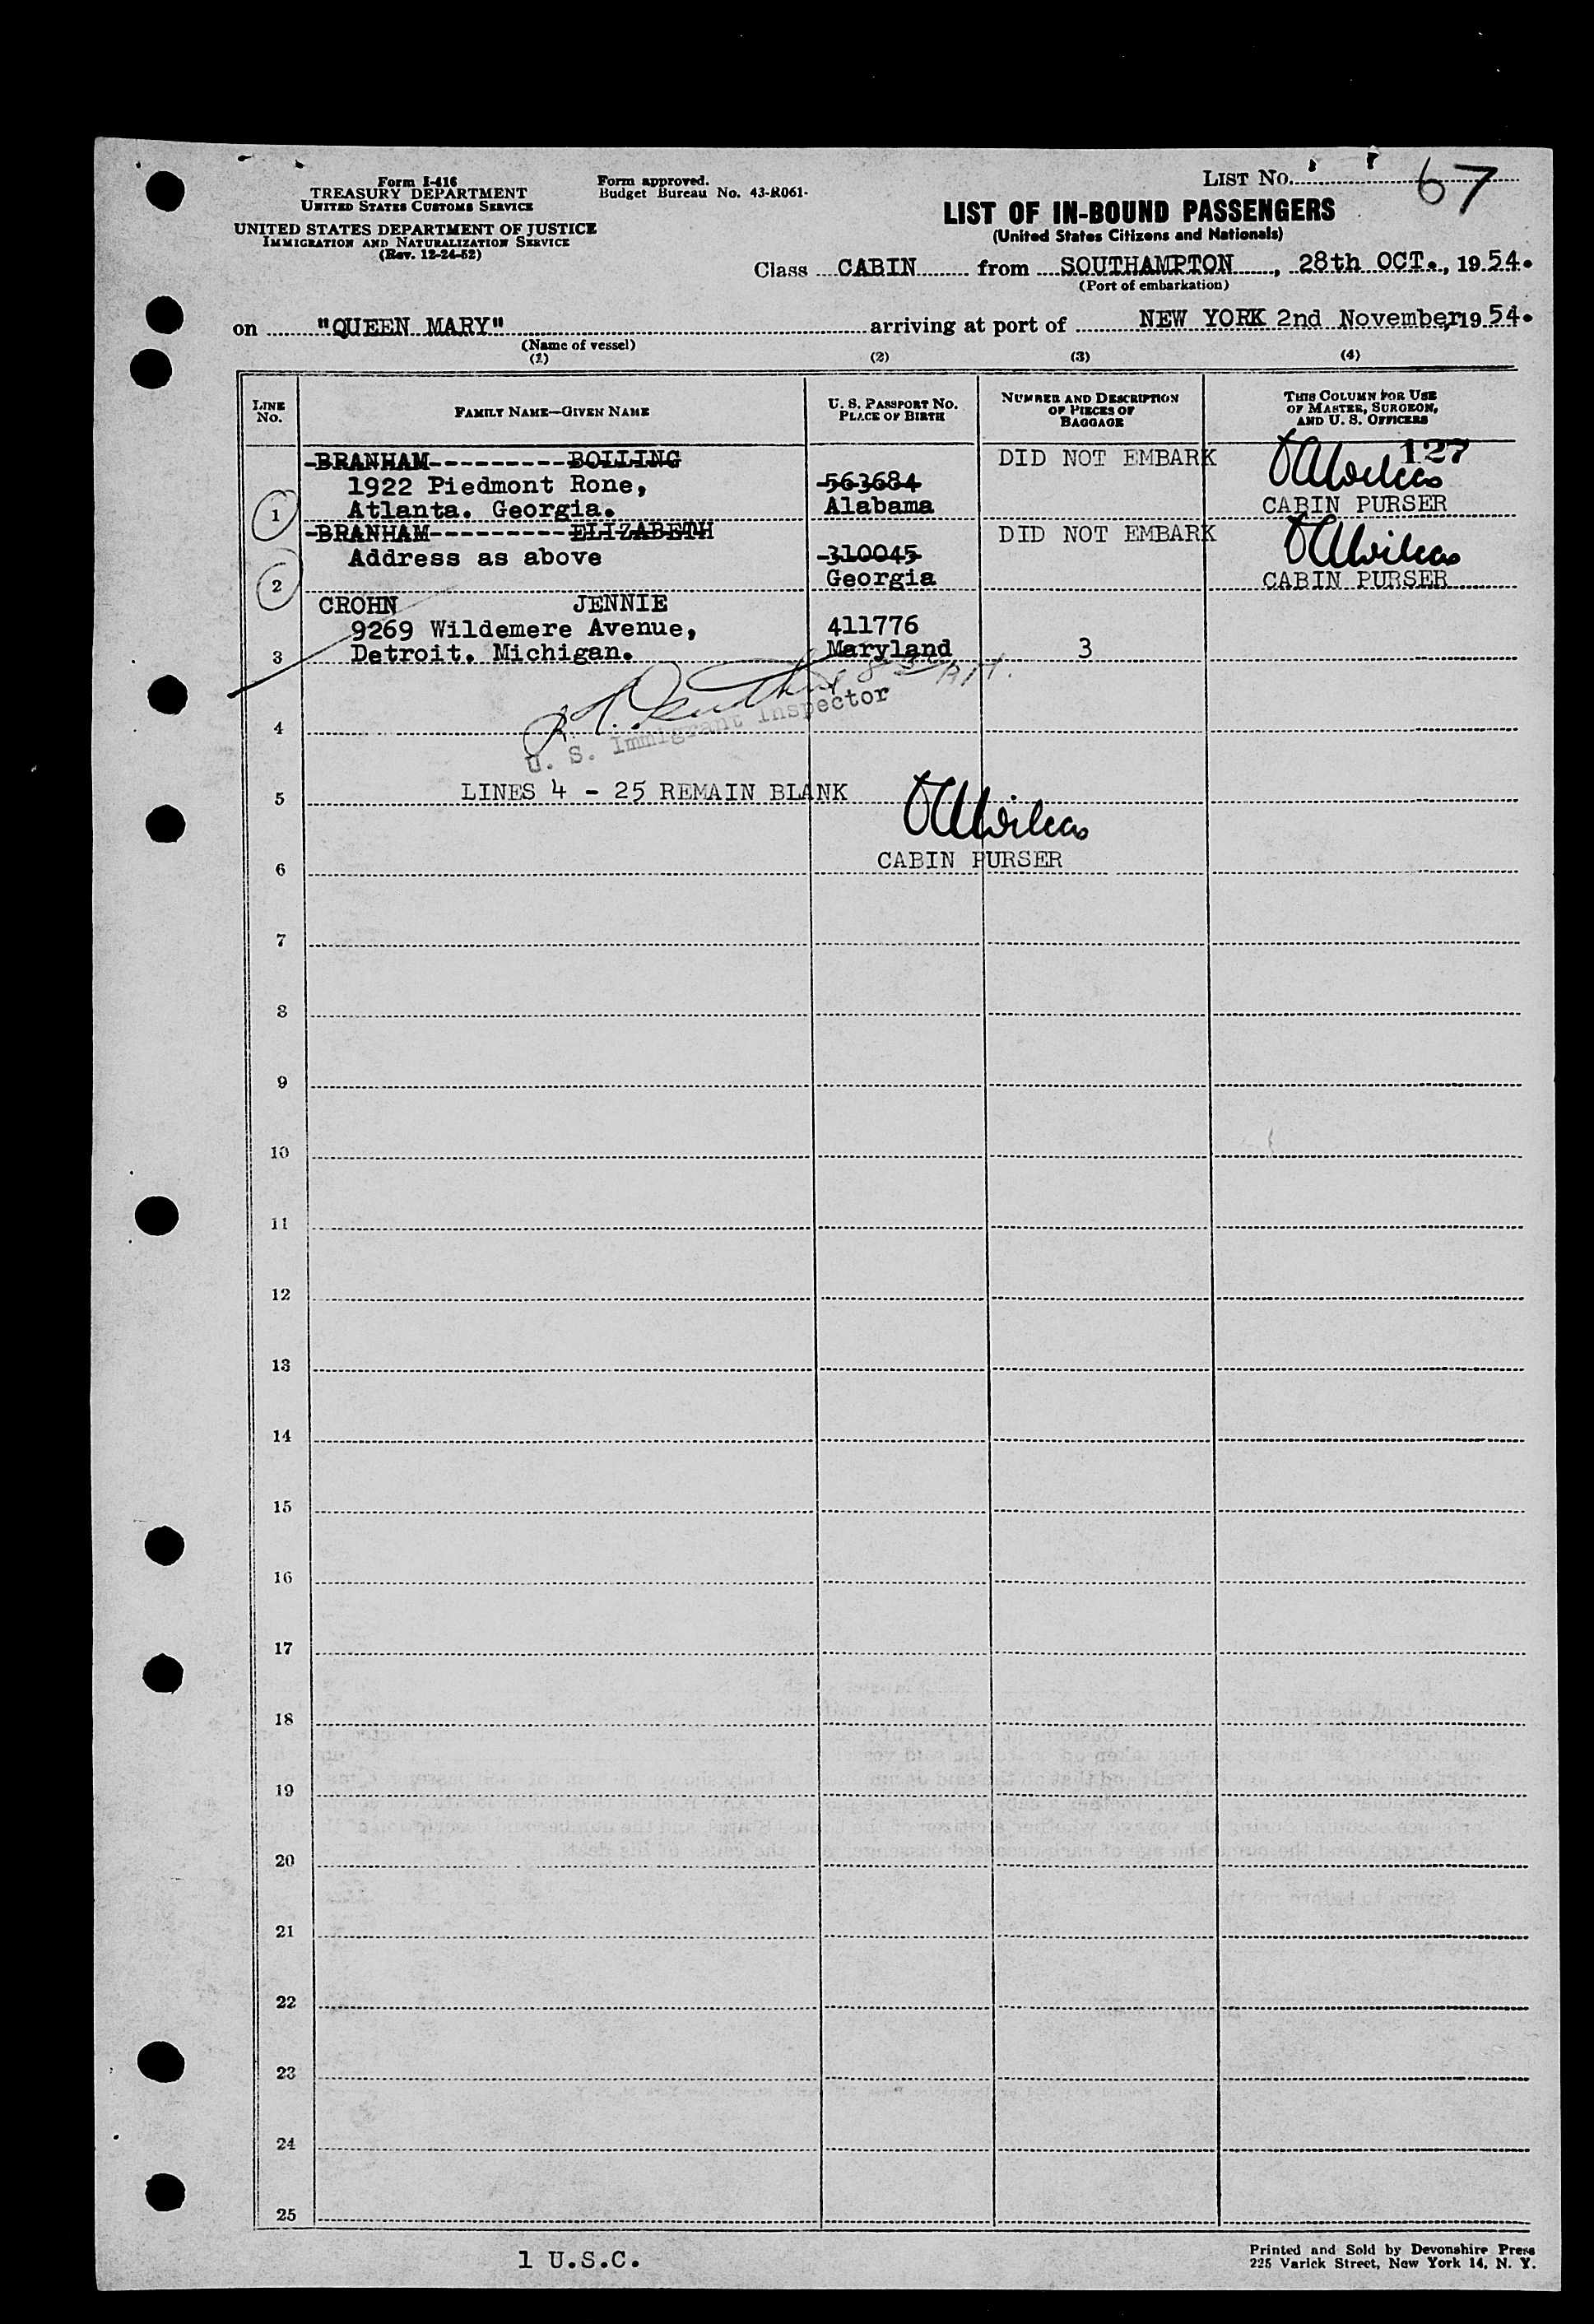 Form I-416
TREASURY DEPARTMENT
UNITED STATES CUSTOMS SERVICE
UNITED STATES DEPARTMENT OF JUSTICE
IMMIGRATION AND NATURALIZATION SERVICE
(Rev. 12-24-52)
Form approved.
Budget Bureau No. 43-R061.
LIST NO. 67
LIST OF IN-BOUND PASSENGERS
(United States Citizens and Nationals)
Class CABIN from SOUTHAMPTON, 28th OCT., 1954.
(Port of embarkation)
on "QUEEN MARY" arriving at port of NEW YORK 2nd November, 1954.
(Name of vessel)
(1) (2) (3) (4)
LINE NO.
FAMILY NAME—GIVEN NAME
U. S. PASSPORT NO.
PLACE OF BIRTH
NUMBER AND DESCRIPTION
OF PIECES OF
BAGGAGE
THIS COLUMN FOR USE
OF MASTER, SURGEON,
AND U. S. OFFICERS
127
BRANHAM---------BOLLING DID NOT EMBARK
1922 Piedmont Rone, 563684
1 Atlanta. Georgia. Alabama CABIN PURSER
BRANHAM---------ELIZABETH DID NOT EMBARK
Address as above 310045
2 Georgia CABIN PURSER
CROHN JENNIE
9269 Wildemere Avenue, 411776
3 Detroit. Michigan. Maryland 3
U. S. Immigrant Inspector
4
5 LINES 4 - 25 REMAIN BLANK
CABIN PURSER
6
7
8
9
10
11
12
13
14
15
16
17
18
19
20
21
22
23
24
25
1 U.S.C.
Printed and Sold by Devonshire Press
225 Varick Street, New York 14, N. Y.